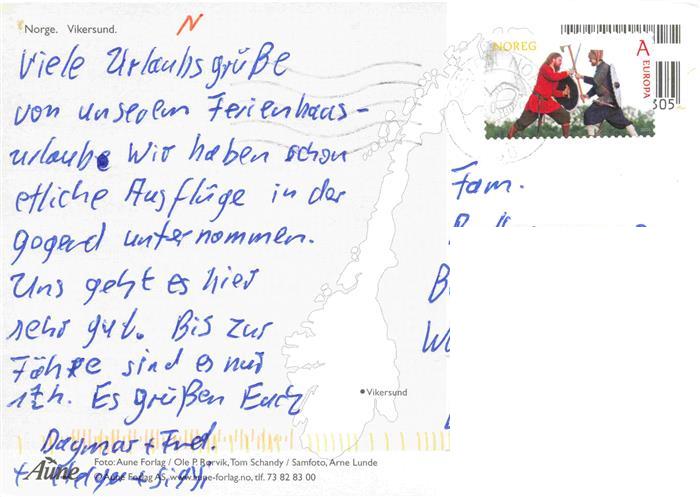 Norge. Vikersund.
N
Viele Urlaubsgrüße
von unserem Ferienhaus-
urlaube Wir haben schon
etliche Ausflüge in der
gogend unternommen.
Uns geht es hier
sehr gut. Bis zur
Fähre sind es nur
1½h. Es grüßen Euch
Dagmar + Fred.
NOREG
A
EUROPA
305
Fam.
Vikersund
Aune
Foto: Aune Forlag / Ole P. Rørvik, Tom Schandy / Samfoto, Arne Lunde
© Aune Forlag AS, www.aune-forlag.no, tlf. 73 82 83 00